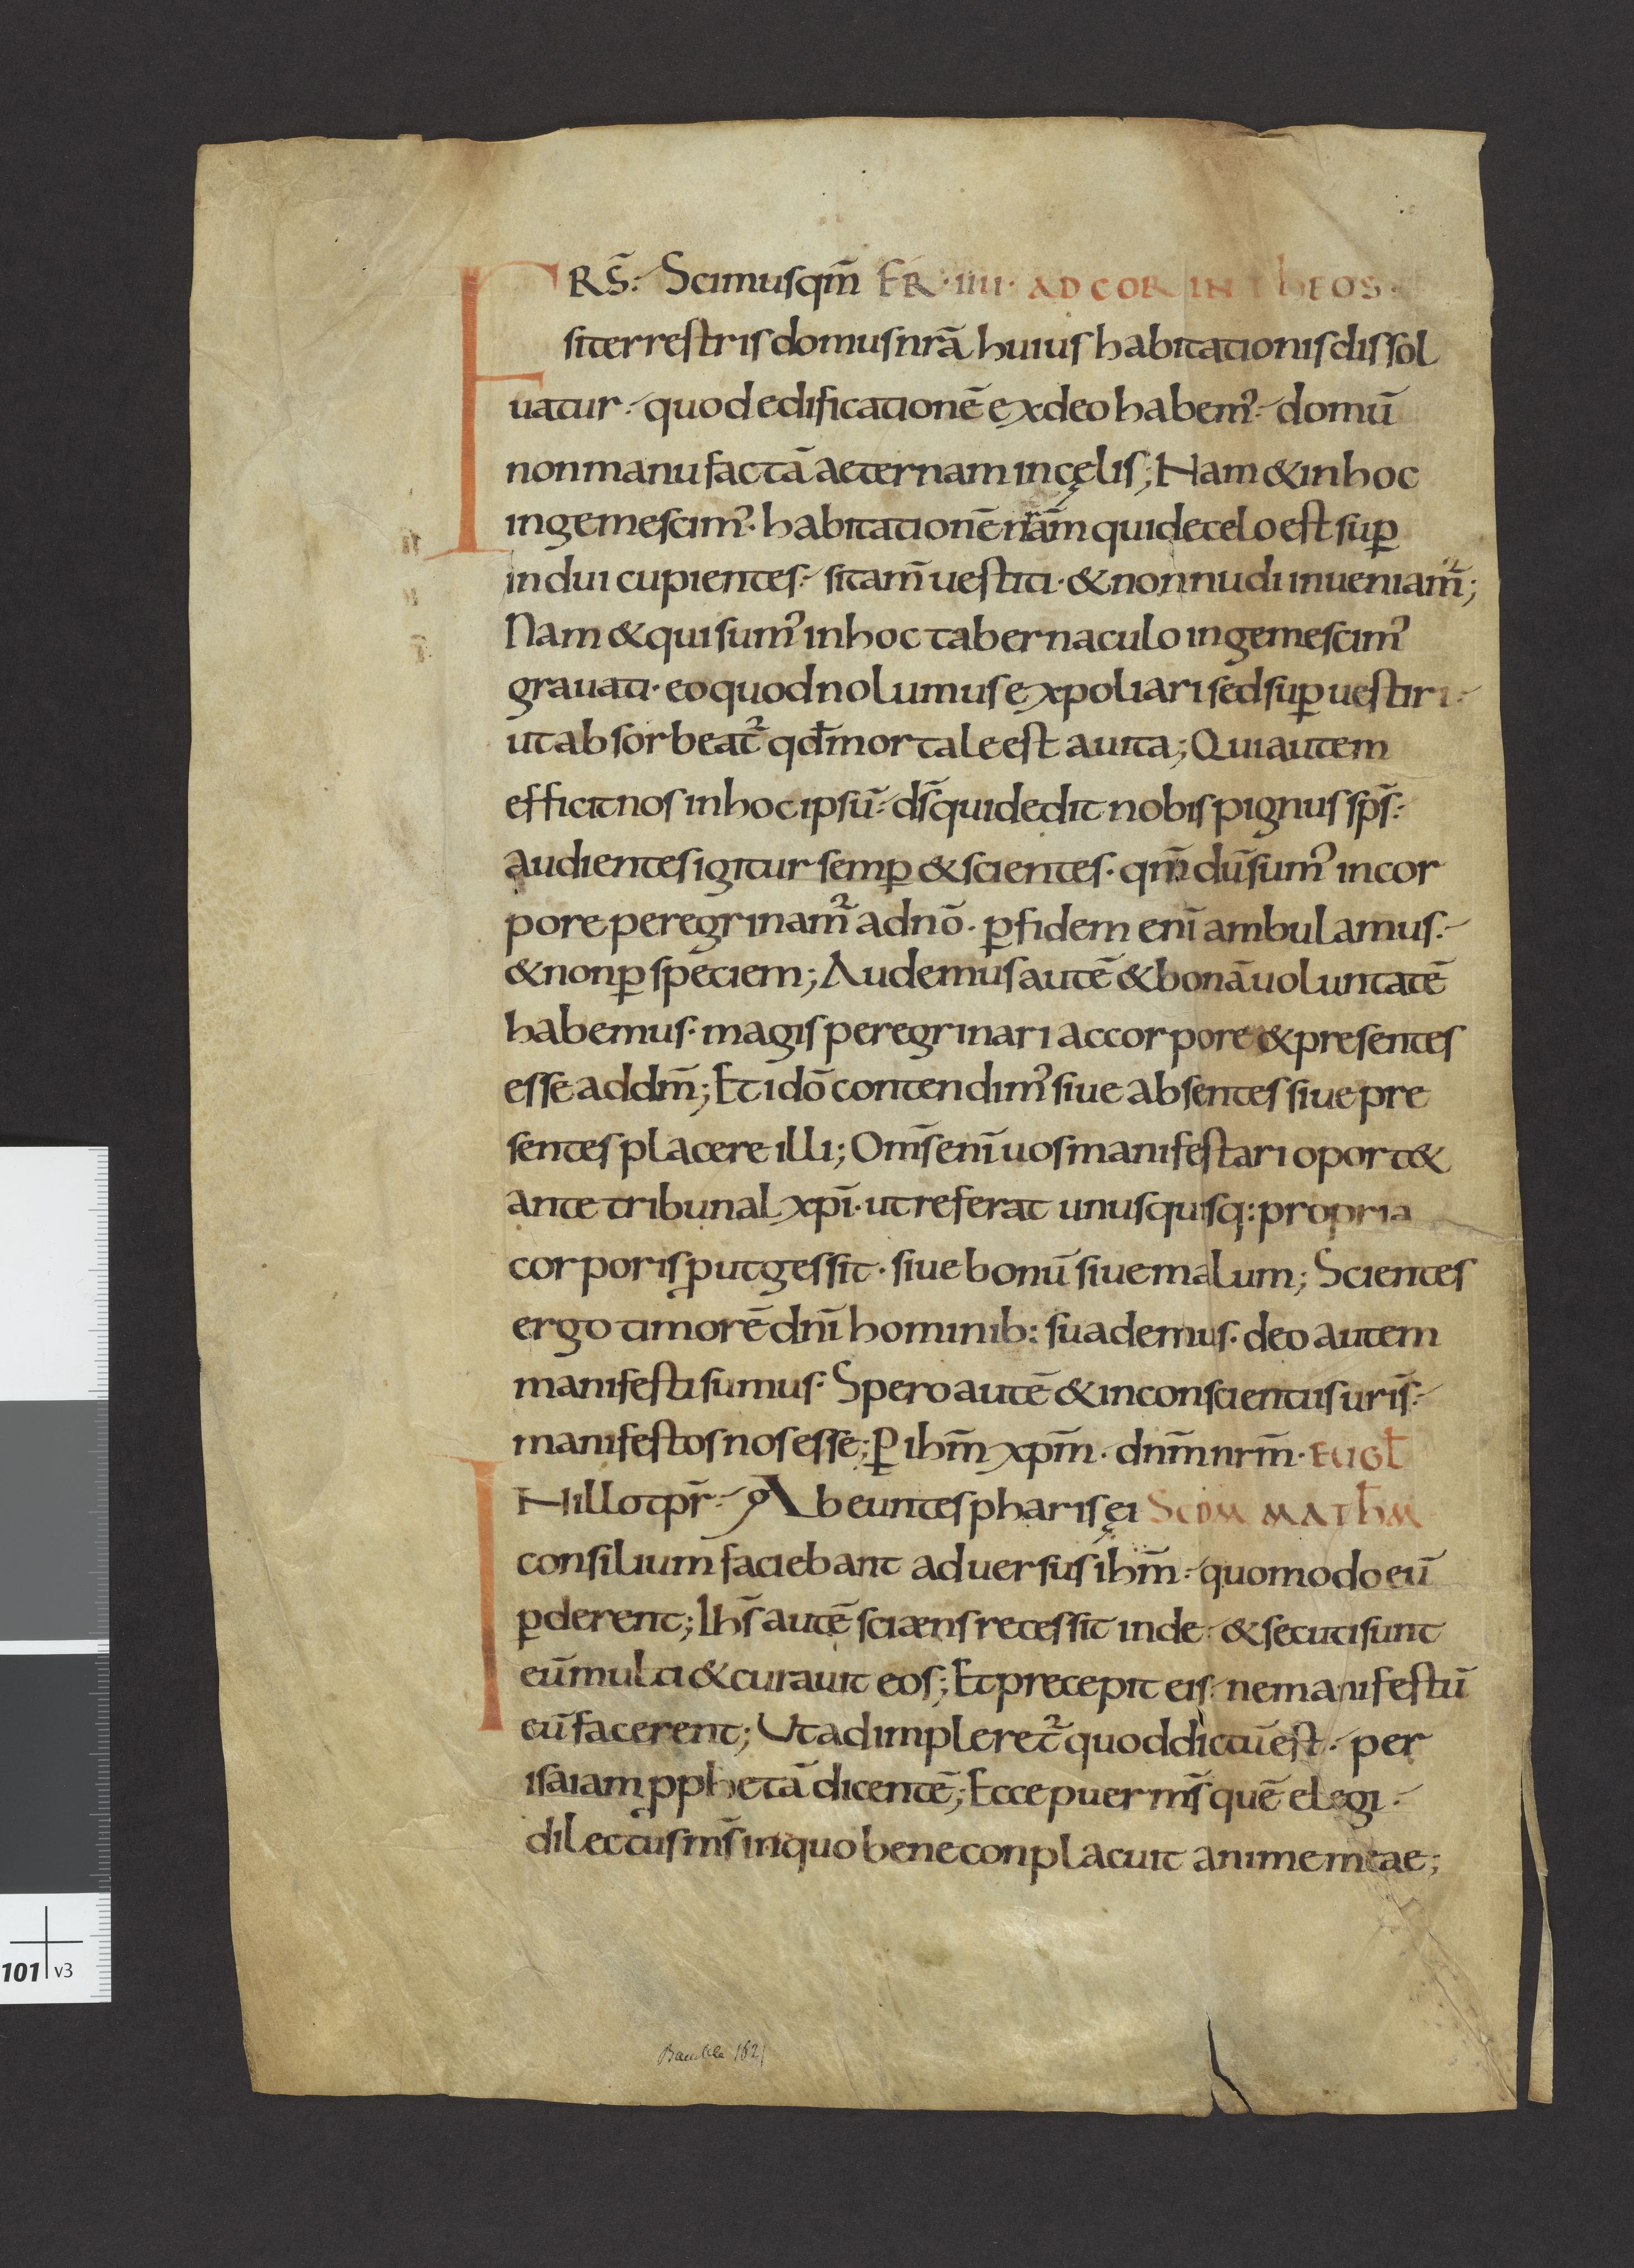 FRS̄ Scimus qm̄ FR · IIII · AD CORINTHEOS ·
si terrestris domus nrā huius habitationis dissol
uatur · quod edificationē ex deo habem' · domū
non manu factā aeternam in cęlis; Nam & in hoc
ingemescim' · habitationē nr̄am qui de celo est sup̄
indui cupientes · si tam̄ uestiti · & non nudi inueniam̄;
Nam & qui sum' in hoc tabernaculo ingemescim'
grauati · eo quod nolumus expoliari sed sup̄ uestiri ·
ut absorbeat̄ qđ mortale est a uita; Qui autem
efficit nos in hoc ipsū · ds̄ qui dedit nobis pignus sp̄s ·
audientes igitur semp̄ & scientes · qm̄ dū sum' in cor
pore peregrinam̄ a dnō · p̄ fidem enī ambulamus ·
& non p̄ speciem; Audemus autē & bonā uoluntatē
habemus · magis peregrinari ac corpore & presentes
esse ad dm̄; Et idō contendim' siue absentes siue pre
sentes placere illi; Om̄s enī uos manifestari oport&
ante tribunal xp̄i · ut referat unusquisq: propria
corporis p̄ut gessit · siue bonū siue malum; Scientes
ergo timorē dnī hominib: suademus · deo autem
manifesti sumus · Spero autē & in conscientiis uris̄ ·
manifestos nos esse; P̄ ihm̄ xpm̄ · dnm̄ nrm̄ · EUGL̄
IN illo tp̄r · Abeuntes pharisęi SCDM MATHM
consilium faciebant aduersus ihm̄ · quomodo eū
p̄derent; Ihs̄ autē sciens recessit inde · & secuti sunt
eū multi & curauit eos; Et precepit eis · ne manifestū
eū facerent; Ut adimpleret̄ quod dictū est · per
isaiam p̄phetā dicentē; Ecce puer ms̄ quē elegi ·
dilectus ms̄ in quo bene conplacuit anime meae;